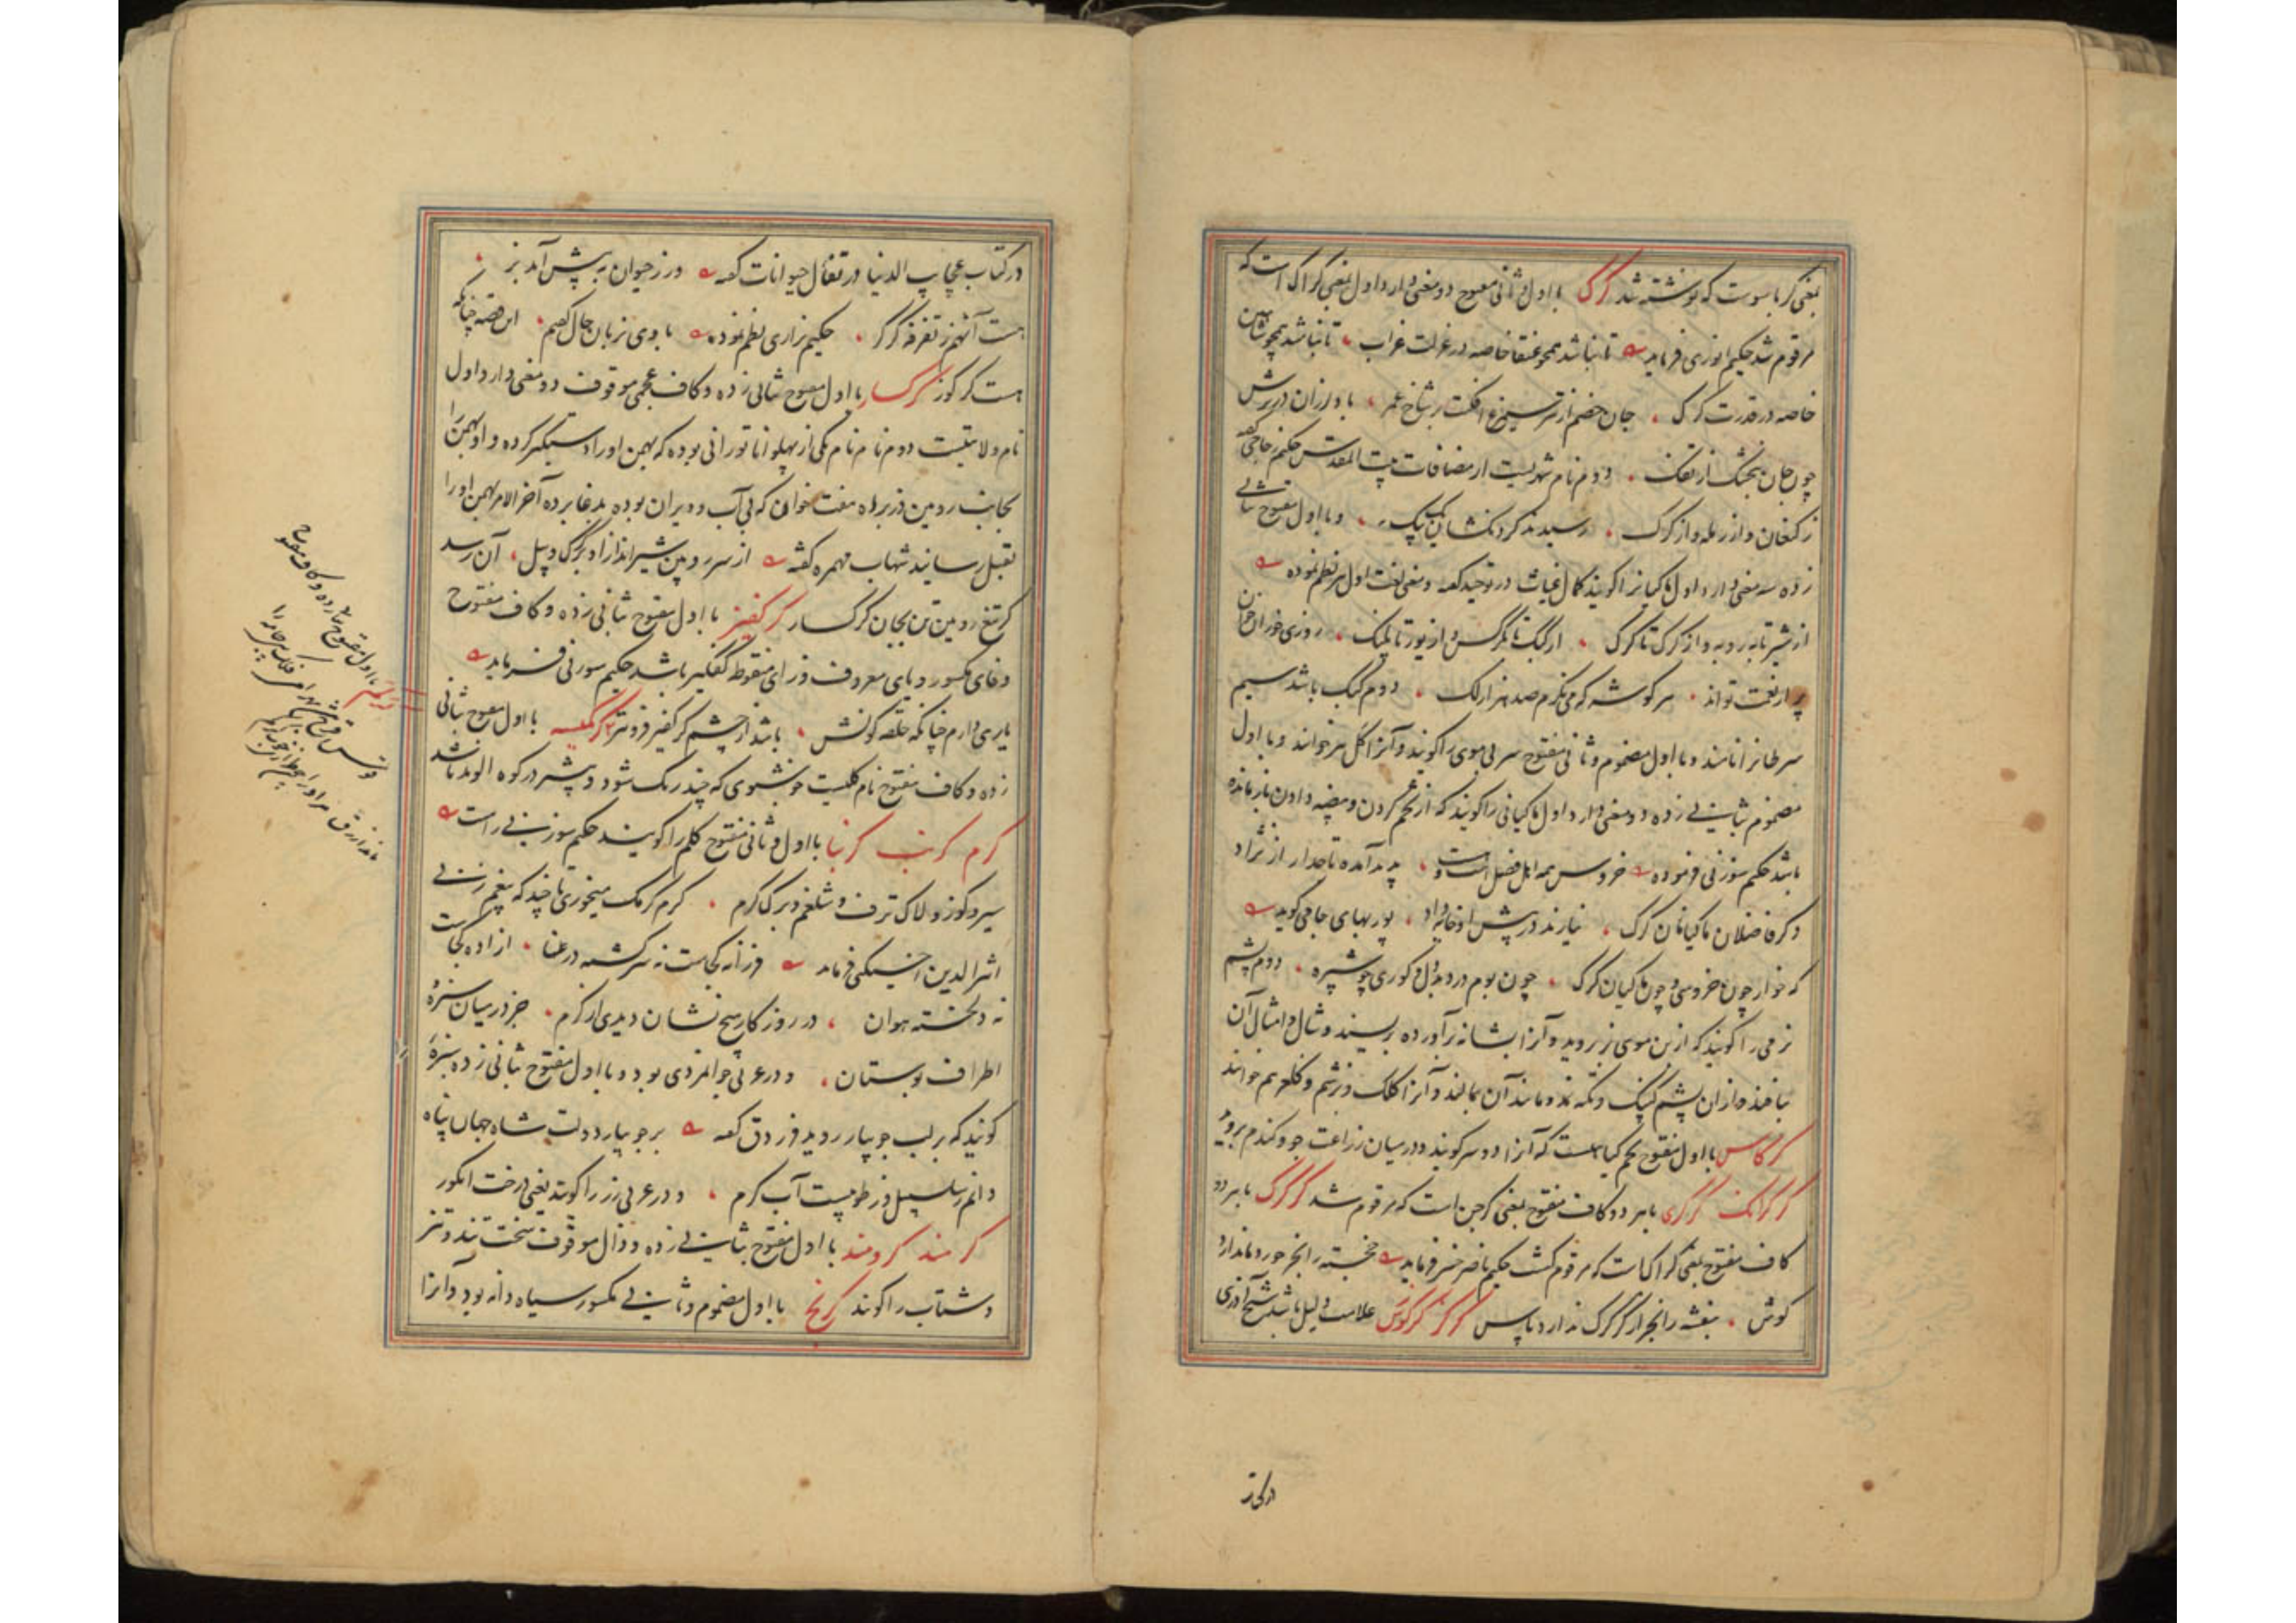 بمعنی کرباسوست که نوشته شد کرک با اول و ثانی مفتوح دو معنی دارد اول بمعنی کراک است که
مرقوم شد حکیم انوری فرماید تا نباشد همچو عنقا خاصه در عزلت غراب تا نباشد همچو شاهین
خاصه در قدرت کرک جان خصم از تیر سیمرغ افکنت بر شاخ عمر باد لرزان در برش
چون جان بنجشک از تفک دوم نام شهریست از مضافات بیت المقدس حکیم گفته
ز کنعان و از رمله و از کرک رسیدند کردنکشان یک بیک و با اول مفتوح بثانی
زده سه معنی دارد اول ماکیانرا کویند کمال غیاث در توحید گفته و معنی لغت اول هم نظم نموده
از شیر تا به روبه و از کرک تا کرک از کبک تا بکرکس و از یوز تا پلنک روزی خوران خوان
پر از نعمت تواند هر کوشه که می نکرم صد هزار لک دوم کبک باشد سیم
سرطانرا نامند و با اول مضموم و ثانی مفتوح سر بی موی را کویند و آنرا کل نیز خوانند و با اول
مضموم بثانی زده دو معنی دارد اول ماکیانی را کویند که از تخم کردن و بیضه دادن باز مانده
باشد حکیم سوزنی فرموده خروس همه اهل فضل است و پدید آمده تاجدار از نژاد
دکر فاضلان ماکیانان کرک نیارند در پیش او خایه داد پور بهای جامی کوید
که خوار چون خروس و چون ماکیان کرک چون بوم در و بال و کوری چو شپره دوم پشم
نرمی را کویند که از بن موی بز بروید و آنرا بشانه برآورده بریسند و شال و امثال آن
ببافند و از آن پشم کپنک و تکیه نمد و مانند آن بمالند و آنرا کلک و بزشم و کلغر هم خوانند
کرکاس با اول مفتوح تخم کیاهیست که آنرا دوسر کویند و در میان زراعت جو و کندم بروید
کرکانک کرکری با هر دو کاف مفتوح بمعنی کرجن است که مرقوم شد کرکرک با هر دو
کاف مفتوح بمعنی کراک است که مرقوم کشت حکیم ناصر خسرو فرماید خجسته را بجز خورد ندارد
کوش بنفشه را بجز از کرکرک ندارد پاس کرکز کرکوز علامت و دلیل باشد شیخ آذری
در کتاب عجایب الدنیا در تفأل حیوانات گفته ور ز حیوان به پیش آمد بز
هست آنهم ز تفرقه کرکز حکیم نزاری نظم نموده با وی بزبان حال کفتم این قصه چنانکه
هست کرکوز کرکسار با اول مفتوح بثانی زده و کاف عجمی موقوف دو معنی دارد اول
نام ولایتیست دوم نام یکی از پهلوانان تورانی بوده که بهمن او را دستکیر کرده و او بهمن را
بجانب رویین دز براه هفت خوان که بی آب و ویران بوده بدغا برده آخر الامر بهمن او را
بقتل رسانید شهاب مهمره گفته از سر رویین شیر انداز او بر کرک و پیل آن رسد
کز تیغ رویین تن بجان کرکسار کرکفیز با اول مفتوح بثانی زده و کاف مفتوح
و فای مکسور و یای معروف و زای منقوطه کفکیر باشد حکیم سوزنی فرماید
یاری دارم چنانکه حلقه کونش باشد از چشم کرکفیز فزونتر کرکیسه با اول مفتوح بثانی
زده و کاف مفتوح نام کلیست خوشبوی که چند رنک شود و بیشتر در کوه الوند باشد
کرم کرنب کرنبا با اول و ثانی مفتوح کلم را کویند حکیم سوزنی راست
سیر و کوز و لاک ترف و شلغم و برک کرم کرم کرمک میخوری تا چند که بیغم زنی
اثیر الدین اخسیکتی فرماید فرزانه کجاست نه سرکشته در عنا آزاده کجاست
نه دلخسته هوان در روزکار هیچ نشان دیدی از کرم جز در میان سبزه
اطراف بوستان و در عربی جوانمردی بود و با اول مفتوح بثانی زده سبزه
کویند که بر لب جویبار روید فردق گفته بر جویبار دولت شاه جهان پناه
دانم سلسبیل و ز طوبیست آب کرم و در عربی رز را کویند یعنی درخت انکور
کرمند کرومند با اول مفتوح بثانی زده و دال موقوف سخت تند و تیز
و شتاب را کویند کرنج با اول مضموم و ثانی مکسور سیاه دانه بود و آنرا
با اول مفتوح بثانی زده و کاف مفتوح
قوس قزح باشد
در کتاب